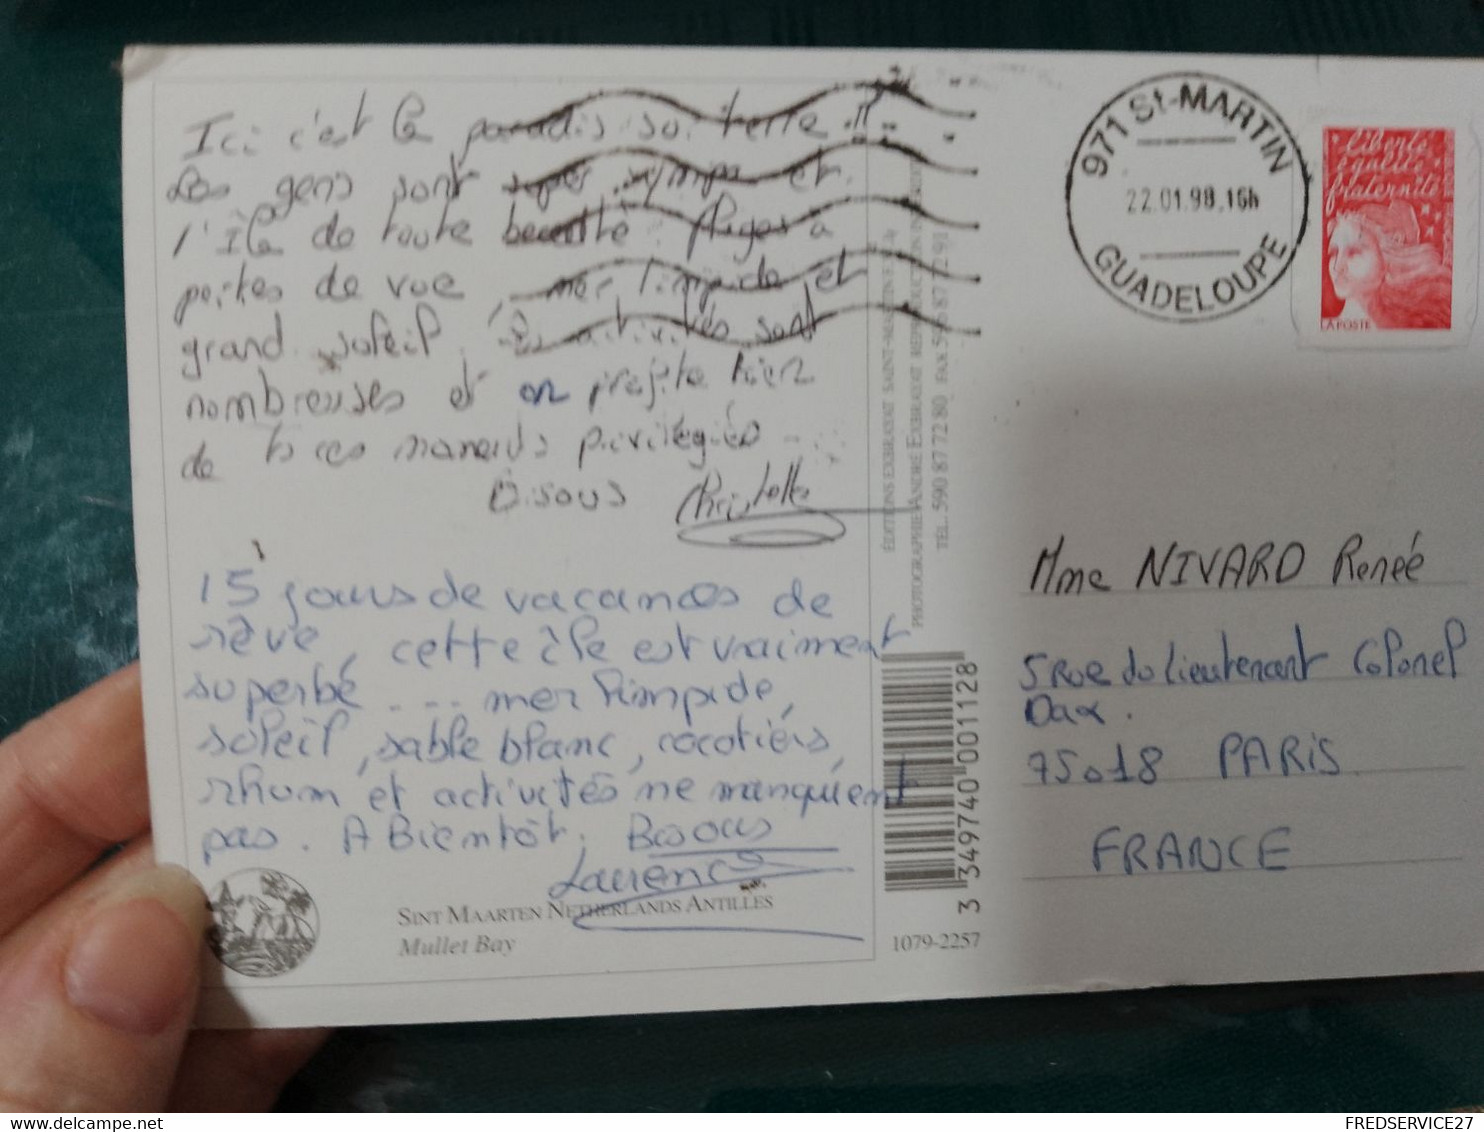 Ici c'est le paradis sur terre !!
Les gens sont super sympa et
l'île de toute beauté. Plages à
pertes de vue, mer limpide et
grand soleil. Les activités sont
nombreuses et on profite bien
de ts ces moments privilégiés ...
Bisous Christelle
15 jours de vacances de
rêve, cette île est vraiment
superbe ... mer limpide,
soleil, sable blanc, cocotiers,
rhum et activités ne manquient
pas. A Bientôt. Bisous
Laurence
SINT MAARTEN NETHERLANDS ANTILLES
Mullet Bay
ÉDITIONS EXBRAYAT SAINT-MARTIN
PHOTOGRAPHIE ANDRÉ EXBRAYAT REPRODUCTION
TÉL. 590 87 72 80 FAX 590 87 72 91
3 349740 001128
1079-2257
971 St-MARTIN
22.01.98.16h
GUADELOUPE
Liberté
égalité
fraternité
LA POSTE
Mme NIVARD Renée
5 Rue du Lieutenant Colonel
Dax.
75018 PARIS
FRANCE
FREDSERVICE27